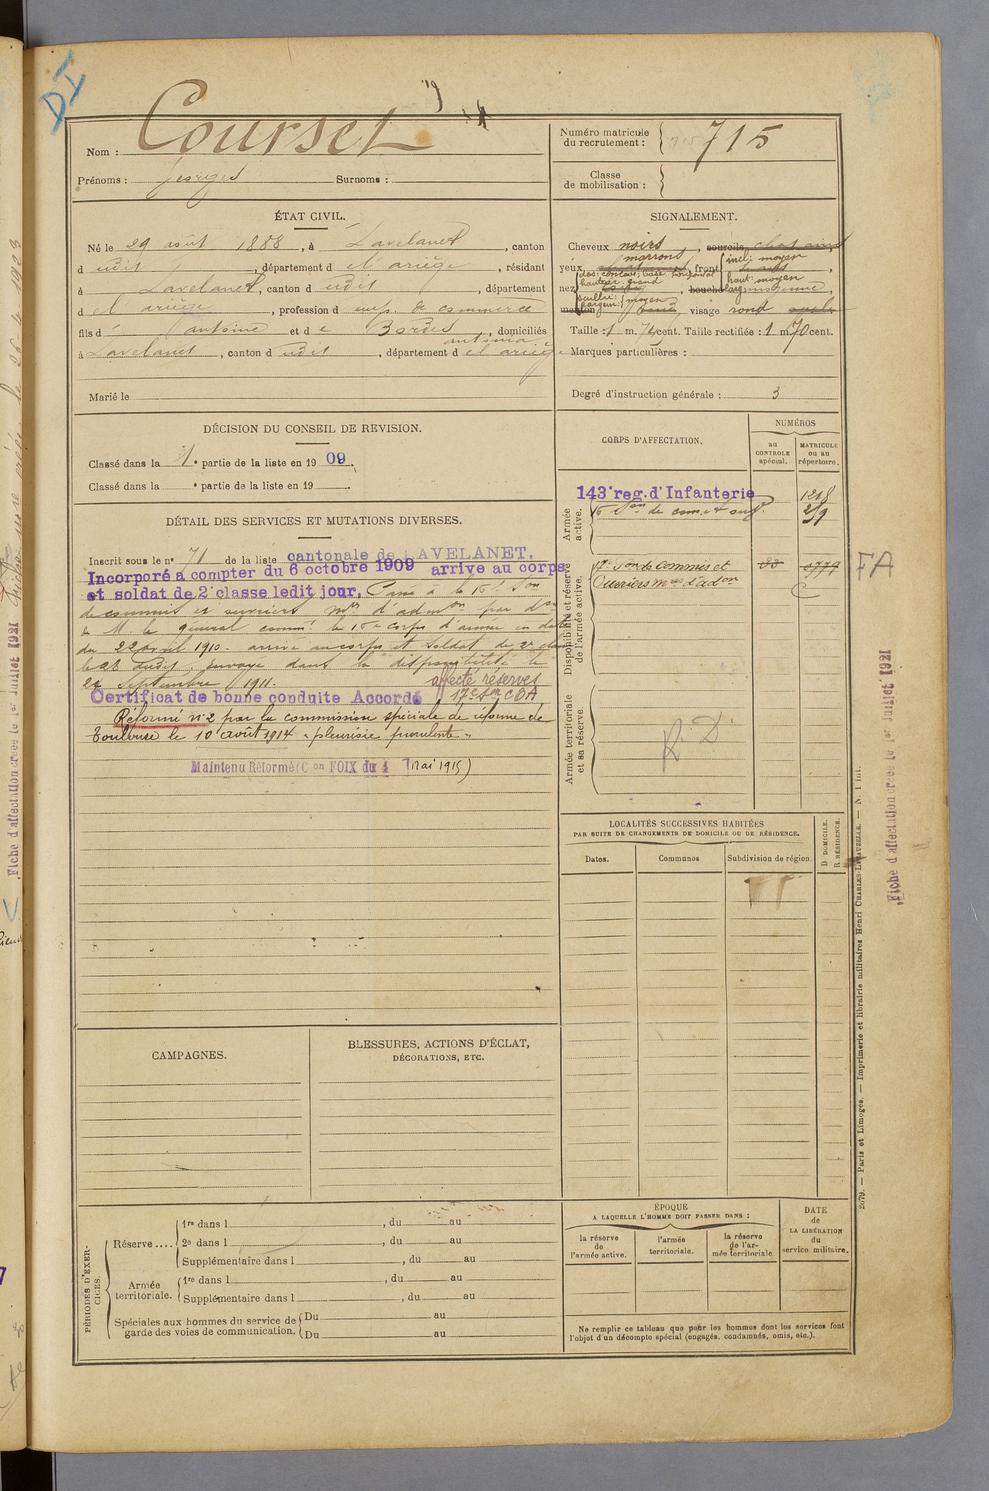 DI
Nom : Courset
Prénoms : Georges Surnoms :
Numéro matricule du recrutement : 715
Classe de mobilisation :
ÉTAT CIVIL.
Né le 29 août 1888, à Lavelanet, canton
d udit, département d e l'ariège, résidant
à Lavelanet, canton d udit, département
d e l'ariège, profession d emp. de commerce
fils d' antoine et d e Bordes antonia, domiciliés
à Lavelanet, canton d udit, département d e l'ariège
Marié le
SIGNALEMENT.
Cheveux noirs, sourcils chatains
yeux marrons, front incl: moyen
haut: moyen
nez dos: concave; base: horizontal
hauteur: grand
saillie: moyen
largeur:
bouche moyenne,
menton rond, visage rond
Taille : 1 m. 71 cent. Taille rectifiée : 1 m. 70 cent.
Marques particulières :
Degré d'instruction générale : 3
DÉCISION DU CONSEIL DE REVISION.
Classé dans la 1e partie de la liste en 1909.
Classé dans la e partie de la liste en 19
CORPS D'AFFECTATION.
NUMÉROS
au CONTROLE spécial.
MATRICULE ou au répertoire.
Armée active.
143e reg. d'Infanterie 1218
16 Son de com. et ouv. 219
Disponibilité et réserve de l'armée active.
17e Son de Commis et
Ouvriers mres d'adon
FA
Armée territoriale et sa réserve.
R.D.
DÉTAIL DES SERVICES ET MUTATIONS DIVERSES.
Inscrit sous le no 71 de la liste cantonale de LAVELANET.
Incorporé à compter du 6 octobre 1909 arrivé au corps
et soldat de 2e classe ledit jour, Passé à la 16e Son
de commis et ouvriers mres d'admon par don
de M. le général commt le 16e corps d'armée en date
du 22 avril 1910. arrivé au corps et soldat de 2e classe
le 23 dudit. envoyé dans la disponibilité le
24 Septembre 1911. affecté réserves
Certificat de bonne conduite Accordé 17e Son COA
Réformé no 2 par la commission spéciale de réforme de
Toulouse le 10 août 1914 "pleurisie purulente"
Maintenu Réformé (Con FOIX du 4 mai 1915)
LOCALITÉS SUCCESSIVES HABITÉES
PAR SUITE DE CHANGEMENTS DE DOMICILE OU DE RÉSIDENCE.
Dates. Communes Subdivision de région.
D DOMICILE.
R RÉSIDENCE.
CAMPAGNES.
BLESSURES, ACTIONS D'ÉCLAT,
DÉCORATIONS, ETC.
PÉRIODES D'EXERCICES.
Réserve .... 1re dans l , du au
2e dans l , du au
Supplémentaire dans l , du au
Armée territoriale. 1re dans l , du au
Supplémentaire dans l , du au
Spéciales aux hommes du service de garde des voies de communication. Du au
Du au
ÉPOQUE
A LAQUELLE L'HOMME DOIT PASSER DANS :
la réserve de l'armée active.
l'armée territoriale.
la réserve de l'armée territoriale
DATE de LA LIBÉRATION du service militaire.
Ne remplir ce tableau que pour les hommes dont les services font
l'objet d'un décompte spécial (engagés, condamnés, omis, etc.).
2679. — Paris et Limoges. — Imprimerie et librairie militaires Henri CHARLES-LAVAUZELLE. — N. 1 int.
Fiche d'affectation créée le 1er Juillet 1921
Fiche d'affectation créée le 1er Juillet 1921